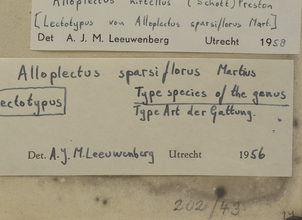 Alloplectus kitellus (Schott) Preston
[Lectotypus von Alloplectus sparsiflorus Mart.]
Det A. J. M. Leeuwenberg Utrecht 1958
Alloplectus sparsiflorus Martius
ectotypus
Type species of the genus
Type Art der Gattung.
Det. A. J. M. Leeuwenberg Utrecht 1956
202/43